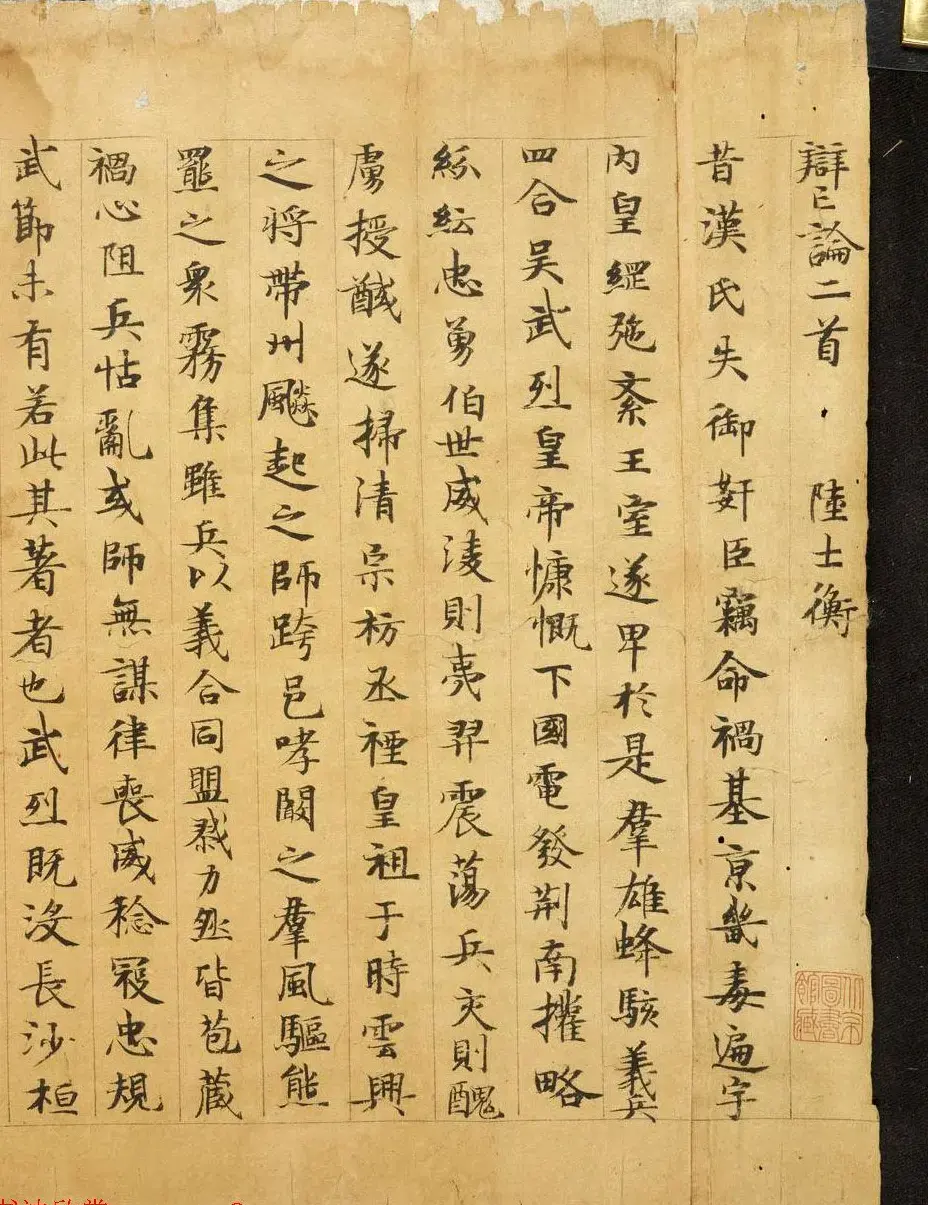 辯亡論二首 陸士衡
昔漢氏失御奸臣竊命禍基京畿毒遍宇
內皇綱弛紊王室遂卑於是羣雄蜂駭義兵
四合吳武烈皇帝慷慨下國電發荊南權略
紛紜忠勇伯世威淩則夷羿震蕩兵交則醜
虜授馘遂掃清宗祊丞禋皇祖于時雲興
之將帶州飈起之師跨邑哮闞之羣風驅熊
羆之衆霧集雖兵以義合同盟勠力然皆苞藏
禍心阻兵怙亂或師無謀律喪威稔寇忠規
武節未有若此其著者也武烈既沒長沙桓